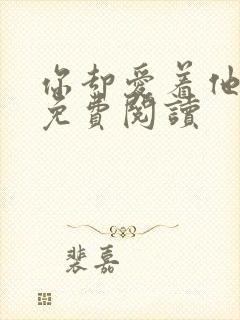 你却愛着他
免費閱讀
裴嘉